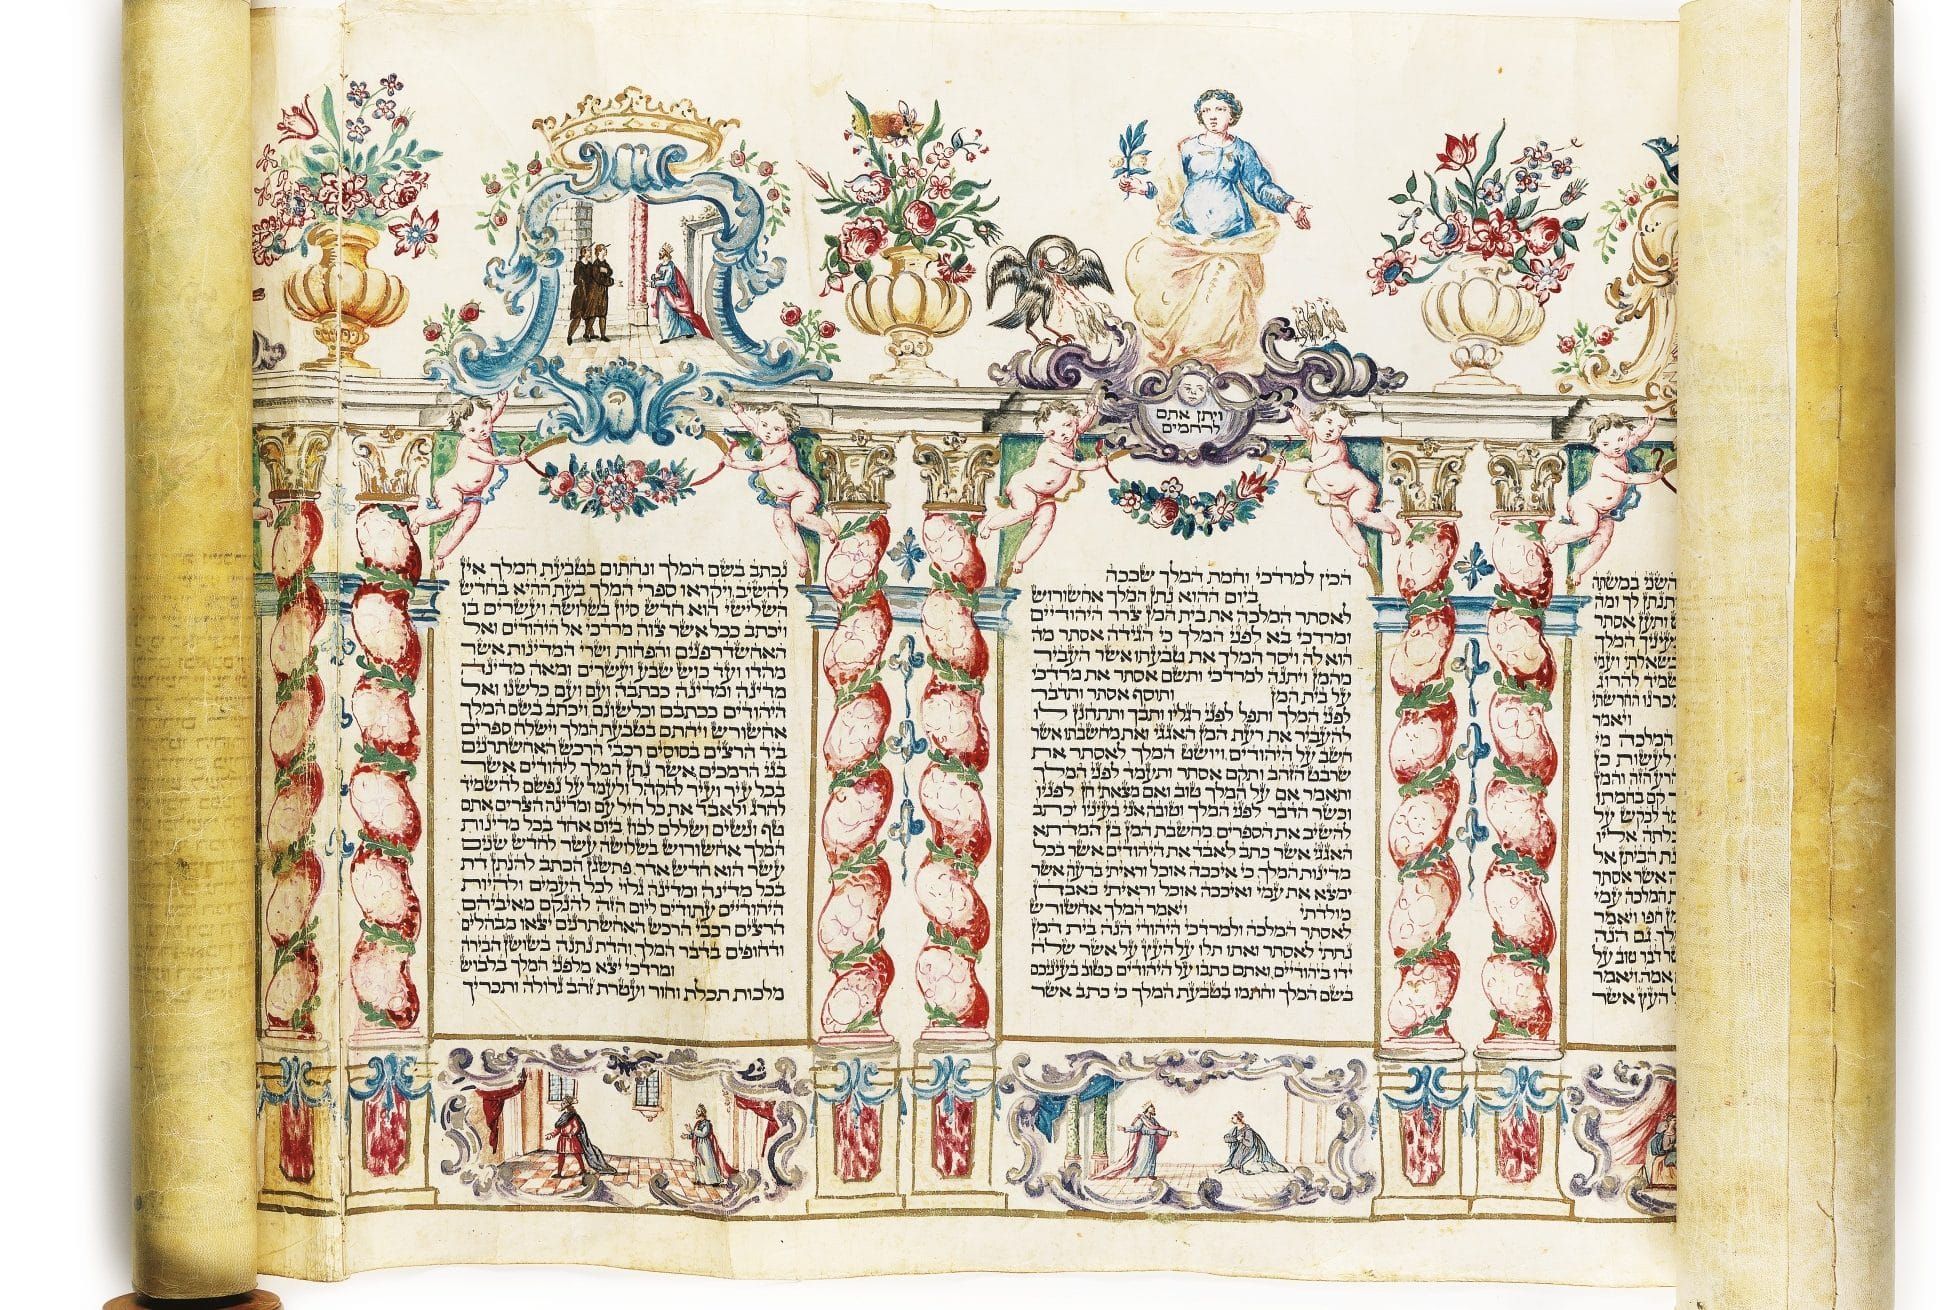 השני במשתה
תנתן לך ומה
ותען אסתר
בעיניך המלך
בשאלתי ועמי
להרוג
החרשתי
ויאמר
המלכה מי
לעשות כן
הרע הזה והמן
קם בחמתו
לבקש על
כלתה אליו
הביתן אל
אשר אסתר
המלכה עמי
חפו ויאמר
גם הנה
דבר טוב על
אמה ויאמר
העץ אשר
ויתן אתם
לרחמים
הכין למרדכי וחמת המלך שככה
ביום ההוא נתן המלך אחשורוש
לאסתר המלכה את בית המן צרר היהודיים
ומרדכי בא לפני המלך כי הגידה אסתר מה
הוא לה ויסר המלך את טבעתו אשר העביר
מהמן ויתנה למרדכי ותשם אסתר את מרדכי
על בית המן ותוסף אסתר ותדבר
לפני המלך ותפל לפני רגליו ותבך ותתחנן לו
להעביר את רעת המן האגגי ואת מחשבתו אשר
חשב על היהודים ויושט המלך לאסתר את
שרבט הזהב ותקם אסתר ותעמד לפני המלך
ותאמר אם על המלך טוב ואם מצאתי חן לפניו
וכשר הדבר לפני המלך וטובה אני בעיניו יכתב
להשיב את הספרים מחשבת המן בן המדתא
האגגי אשר כתב לאבד את היהודים אשר בכל
מדינות המלך כי איככה אוכל וראיתי ברעה אשר
ימצא את עמי ואיככה אוכל וראיתי באבדן
מולדתי ויאמר המלך אחשורוש
לאסתר המלכה ולמרדכי היהודי הנה בית המן
נתתי לאסתר ואתו תלו על העץ על אשר שלח
ידו ביהודיים ואתם כתבו על היהודים כטוב בעיניכם
בשם המלך וחתמו בטבעת המלך כי כתב אשר
נכתב בשם המלך ונחתום בטבעת המלך אין
להשיב ויקראו ספרי המלך בעת ההיא בחדש
השלישי הוא חדש סיון בשלושה ועשרים בו
ויכתב ככל אשר צוה מרדכי אל היהודים ואל
האחשדרפנים והפחות ושרי המדינות אשר
מהדו ועד כוש שבע ועשרים ומאה מדינה
מדינה ומדינה ככתבה ועם ועם כלשנו ואל
היהודים ככתבם וכלשונם ויכתב בשם המלך
אחשורש ויחתם בטבעת המלך וישלח ספרים
ביד הרצים בסוסים רכבי הרכש האחשתרנים
בני הרמכים אשר נתן המלך ליהודים אשר
בכל עיר ועיר להקהל ולעמד על נפשם להשמיד
להרג ולאבד את כל חיל עם ומדינה הצרים אתם
טף ונשים ושללם לבוז ביום אחד בכל מדינות
המלך אחשורוש בשלושה עשר לחדש שנים
עשר הוא חדש אדר פתשגן הכתב להנתן דת
בכל מדינה ומדינה גלוי לכל העמים ולהיות
היהודיים עתודים ליום הזה להנקם מאיביהם
הרצים רכבי הרכש האחשתרנים יצאו מבהלים
ודחופים בדבר המלך והדת נתנה בשושן הבירה
ומרדכי יצא מלפני המלך בלבוש
מלכות תכלת וחור ועטרת זהב גדולה ותכריך